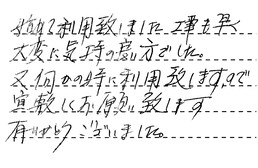 始めて利用致しました工事も早く
大変に気持の良い方でした。
又何かの時に利用致しますので
宜敷しくお願い致します
有りがとうございました。